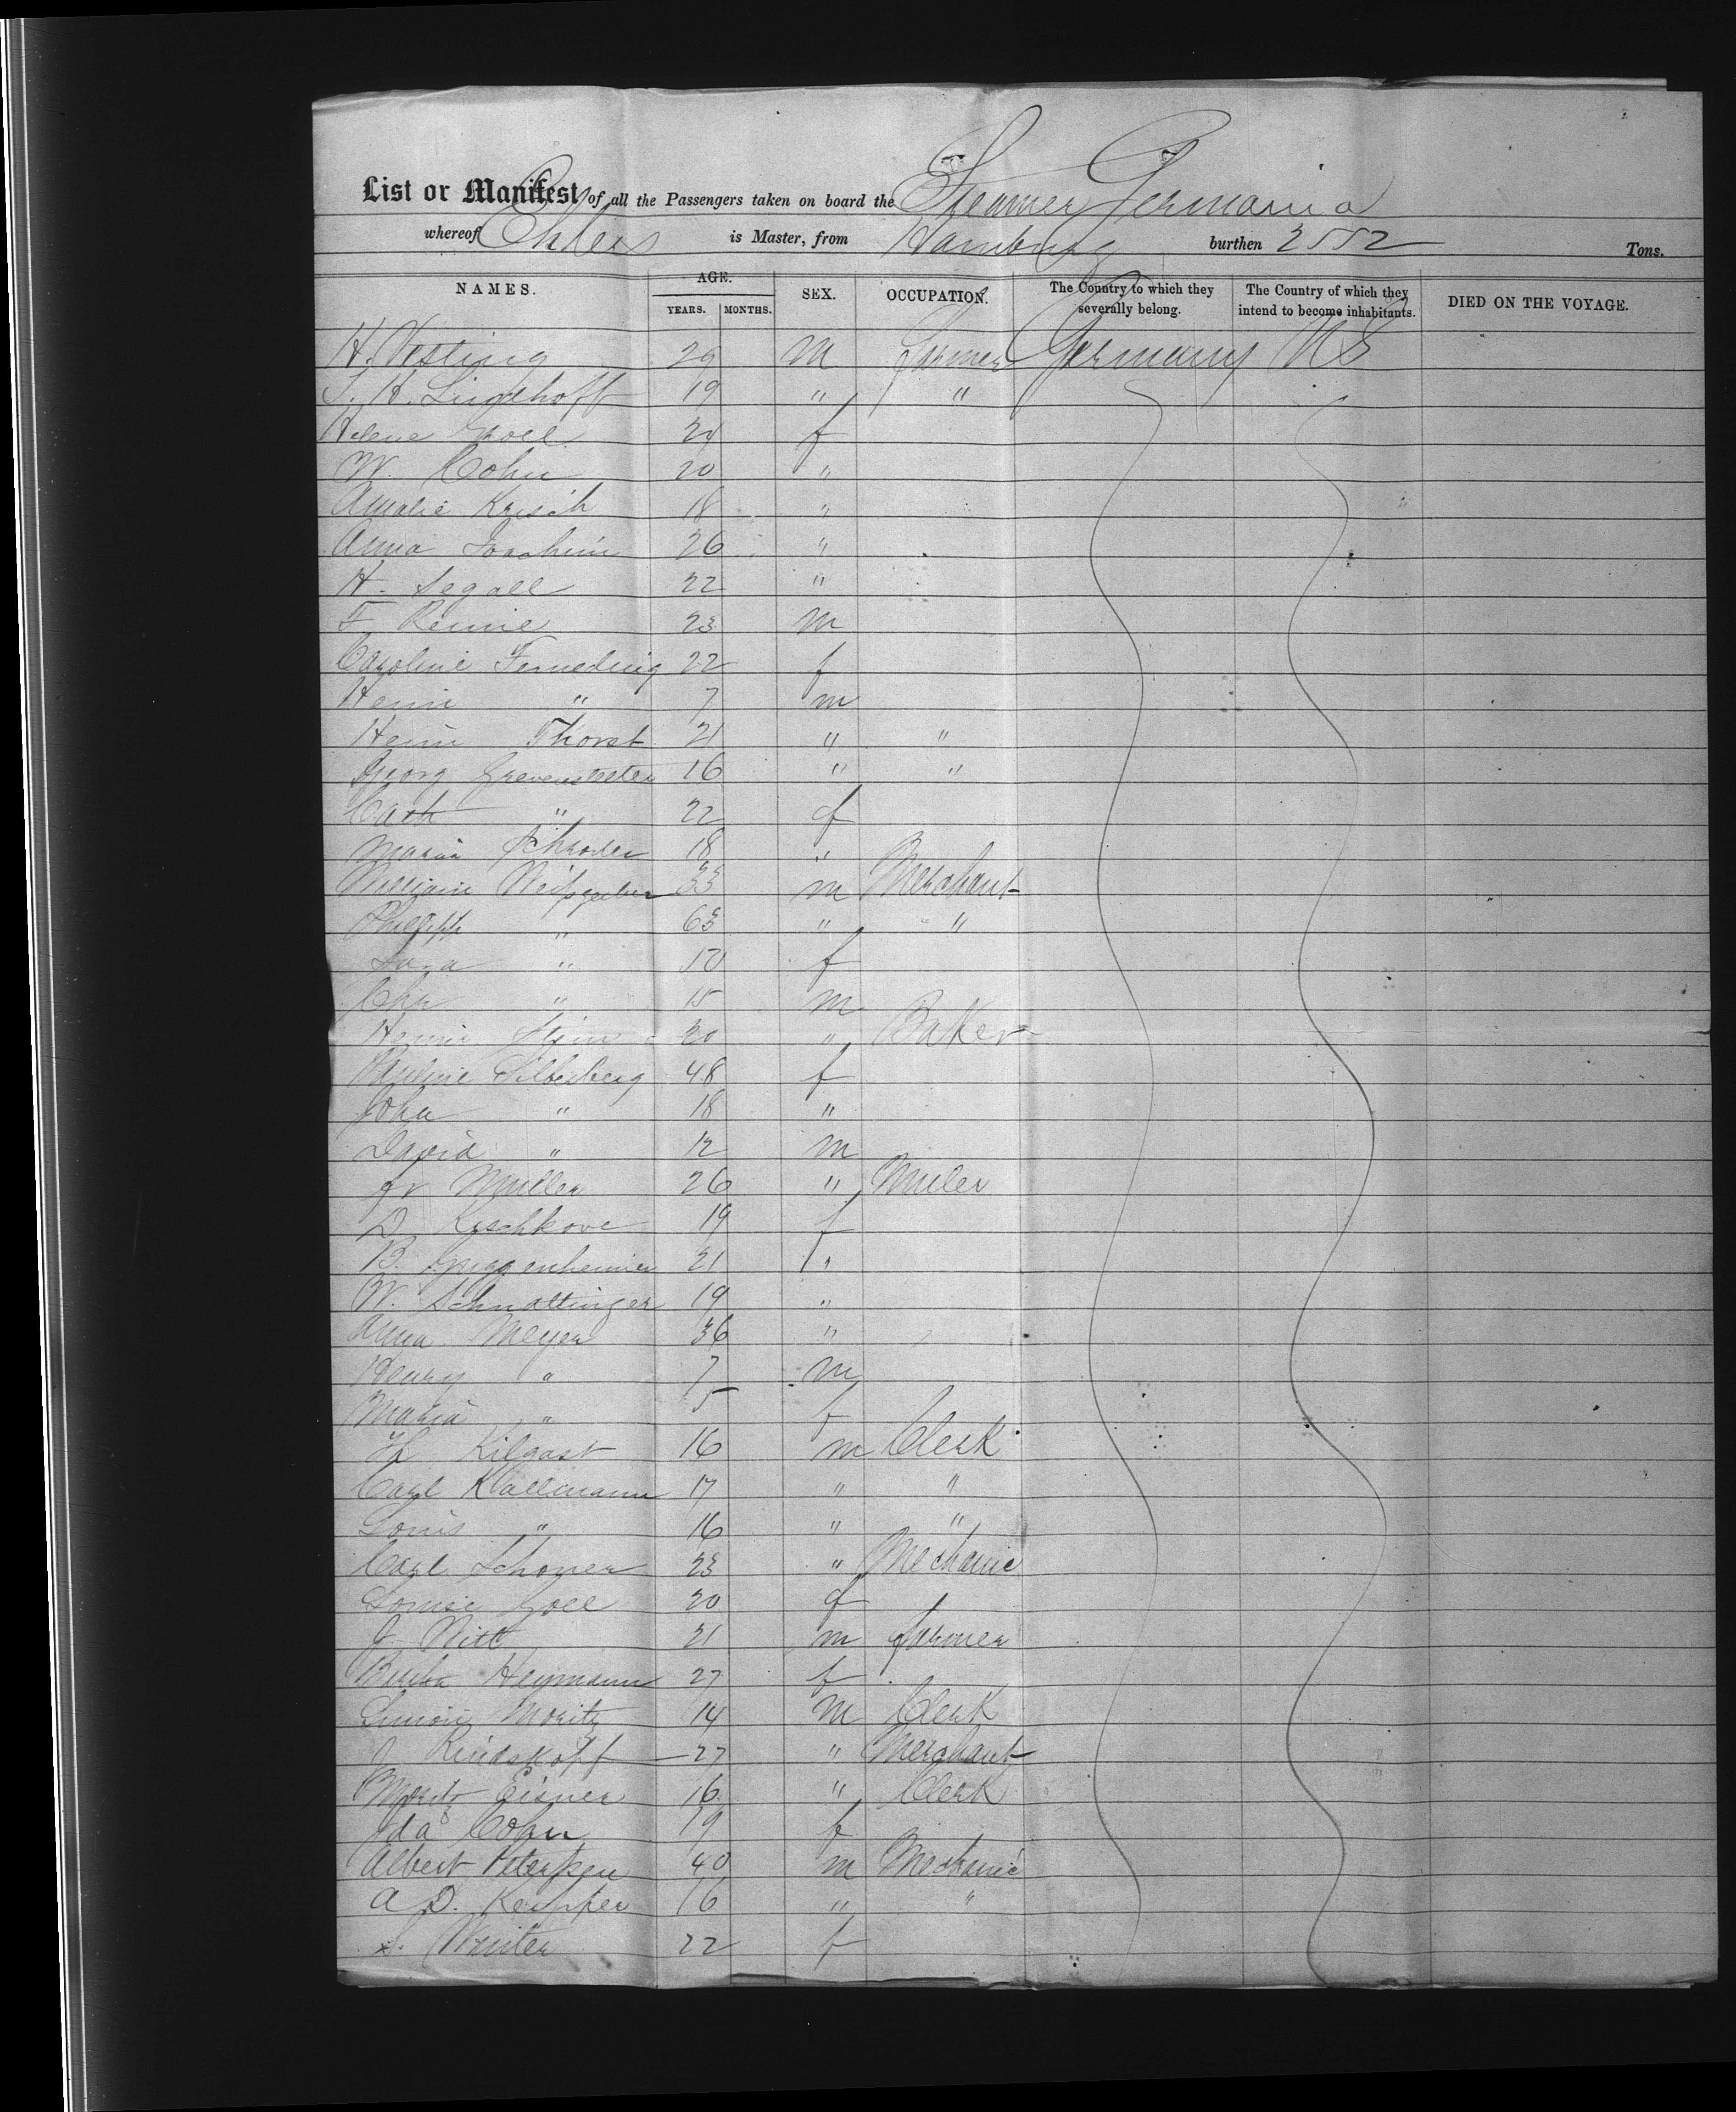 List or Manifest of all the Passengers taken on board the Steamer Germania
whereof Ehlers is Master, from Hamburg burthen 2552 Tons.
NAMES. AGE. YEARS. MONTHS. SEX. OCCUPATION. The Country to which they severally belong. The Country of which they intend to become inhabitants. DIED ON THE VOYAGE.
H. Vesting 29 m farmer Germany US
H. Lindhoff 19 " "
Helene 24 f
W. Cohn 20 "
Amalie Krisch 18 "
Anna Joachim 26 "
H. Segall 22 "
F Renne 23 m
Caroline Femeding 22 f
Henri " 7 m
Henri Thorst 21 " "
Georg Grevensteter 16 " "
Cath " 22 f
Maria Schroder 18 "
William 33 m Merchant
Philipp " 63 " "
Sara " 50 f
" 15 m
Henri 20 " Baker
Pauline Silberberg 48 f
" 18 "
David " 12 m
Fr Muller 26 " Muler
D. Kischkove 19 f
B. Guggenheimer 21 "
W. Schnattinger 19 "
Anna Meyer 36 "
Henry " 7 m
Maria " 5 f
Kilgast 16 m Clerk
Carl Kallmann 17 " "
Louis " 16 " "
Carl Schoner 23 " Mechanic
Louise Goll 20 f
J. Witt 21 m farmer
Bertha Heymann 27 f
Simon Moritz 14 m Clerk
J Rindskopf 27 " Merchant
Moritz Eisner 16 " Clerk
Ida Cohn 19 f
Albert Petersen 40 m Mechanic
A D. Kemper 16 " "
S. Winter 22 f